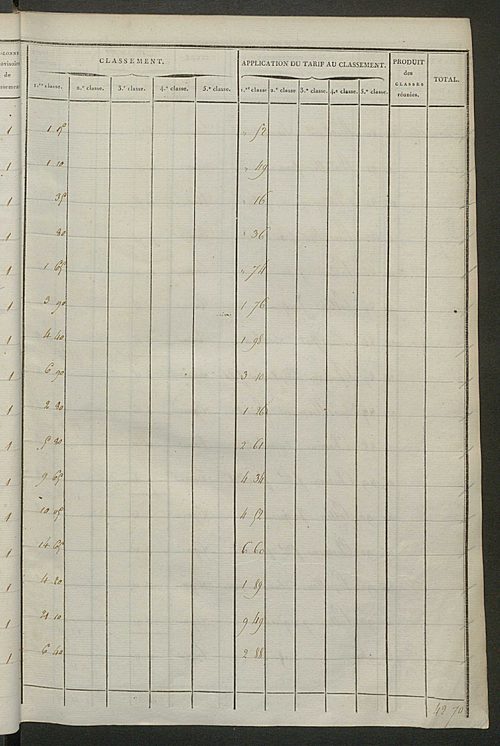 CLASSEMENT. APPLICATION DU TARIF AU CLASSEMENT. PRODUIT des CLASSES réunies. TOTAL.
de
1.re classe. 2.e classe. 3.e classe. 4.e classe. 5.e classe. 1.re classe 2.e classe. 3.e classe. 4.e classe. 5.e classe.
1 1 15 " 52
1 1 10 " 49
1 35 " 16
1 80 " 36
1 1 65 " 74
1 3 90 1 76
1 4 40 1 98
1 6 90 3 10
1 2 80 1 26
1 5 80 2 61
1 9 65 4 34
1 10 05 4 52
1 14 65 6 60
1 4 20 1 89
1 21 10 9 49
1 6 40 2 88
42 70